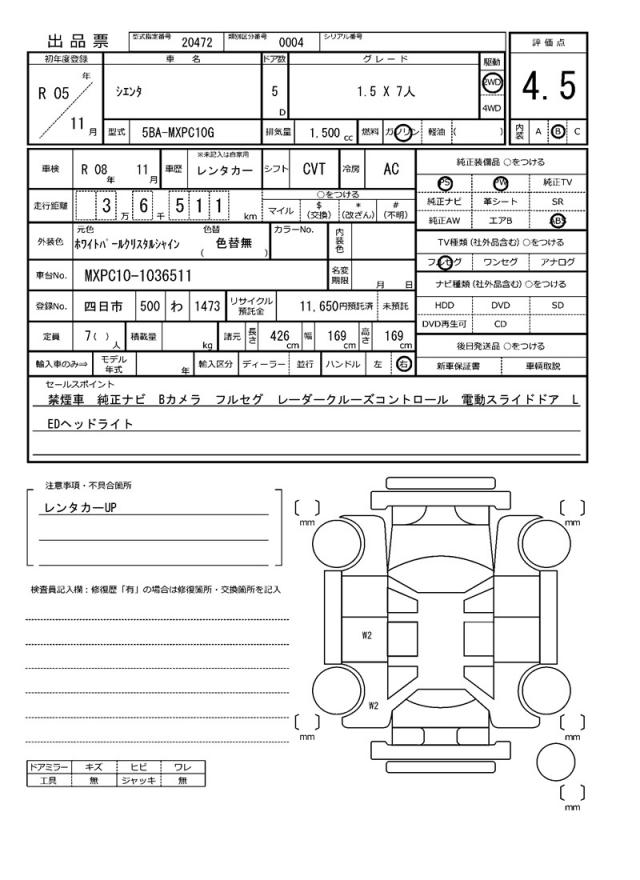 出品票
型式指定番号 20472 類別区分番号 0004 シリアル番号
評価点
4.5
内装 A B C
初年度登録 車名 ドア数 グレード 駆動
R 05 年 11 月
シエンタ
5 D
1.5 X 7人
2WD
4WD
型式 5BA-MXPC10G 排気量 1.500 cc 燃料 ガソリン 軽油 ( )
車検 R 08 年 11 月 車歴 ※未記入は自家用 レンタカー シフト CVT 冷房 AC
走行距離 3 万 6 千 5 1 1 km
○をつける
マイル $ (交換) * (改ざん) # (不明)
外装色 元色 ホワイトパールクリスタルシャイン 色替 ( 色替無 ) カラーNo. 内装色
車台No. MXPC10-1036511 名変期限 月 日
登録No. 四日市 500 わ 1473 リサイクル預託金 11,650円預託済 未預託
定員 7( ) 人 積載量 kg 諸元 長さ 426 cm 幅 169 cm 高さ 169 cm
輸入車のみ⇒ モデル年式 年 輸入区分 ディーラー 並行 ハンドル 左 右
純正装備品 ○をつける
PS PW 純正TV
純正ナビ 革シート SR
純正AW エアB ABS
TV種類 (社外品含む) ○をつける
フルセグ ワンセグ アナログ
ナビ種類 (社外品含む) ○をつける
HDD DVD SD
DVD再生可 CD
後日発送品 ○をつける
新車保証書 車輌取説
セールスポイント
禁煙車 純正ナビ Bカメラ フルセグ レーダークルーズコントロール 電動スライドドア L
EDヘッドライト
注意事項・不具合箇所
レンタカーUP
検査員記入欄：修復歴「有」の場合は修復箇所・交換箇所を記入
ドアミラー キズ ヒビ ワレ
工具 無 ジャッキ 無
[ ] mm
[ ] mm
W2
W2
[ ] mm
[ ] mm
[ ] mm